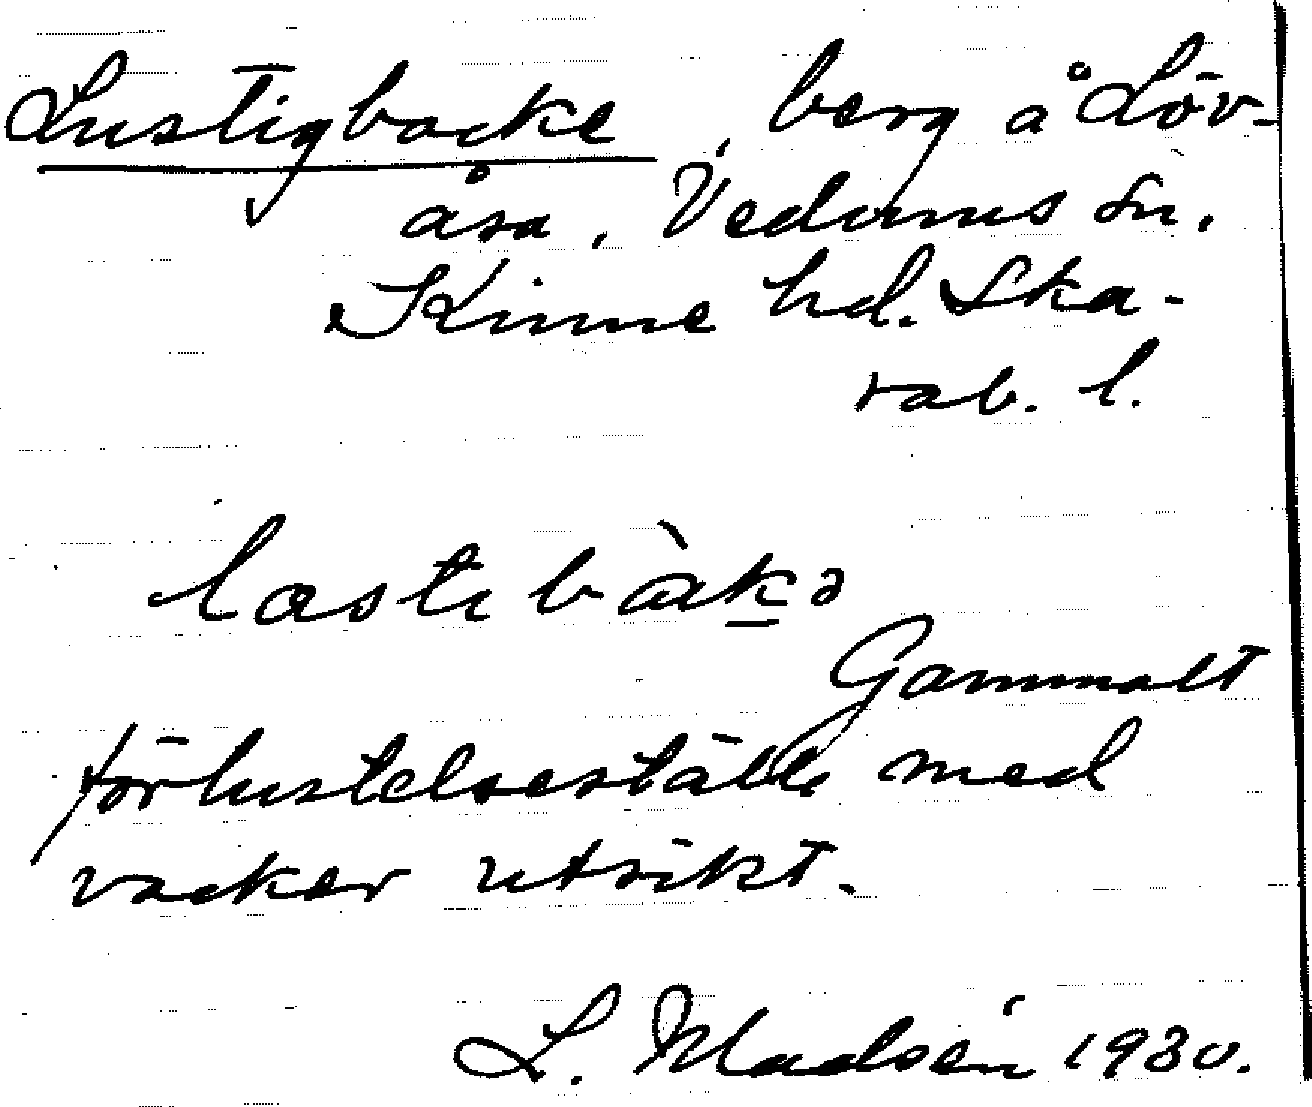 Lustigbacke, berg å Löv-
åsa, Vedums sn,
Kinne hd. Ska-
rab. l.
lasti bàkə
Gammalt
förlustelseställe med
vacker utsikt.
L. Madsén 1930.